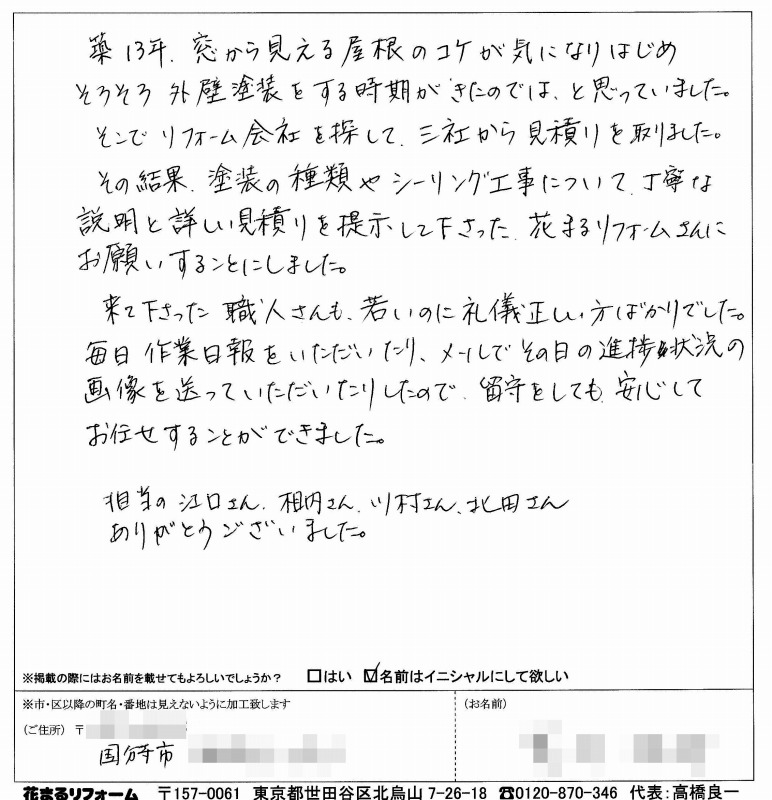 築13年、窓から見える屋根のコケが気になりはじめ
そろそろ 外壁塗装をする時期がきたのでは、と思っていました。
そこで リフォーム会社を探して、三社から見積りを取りました。
その結果、塗装の種類やシーリング工事について、丁寧な
説明と詳しい見積りを提示して下さった、花まるリフォームさんに
お願いすることにしました。
来て下さった 職人さんも、若いのに礼儀正しい方ばかりでした。
毎日 作業日報をいただいたり、メールでその日の進捗状況の
画像を送っていただいたりしたので、留守をしても、安心して
お任せすることができました。
担当の 江口さん、相内さん、川村さん、北田さん
ありがとうございました。
※掲載の際にはお名前を載せてもよろしいでしょうか? □はい ☑名前はイニシャルにして欲しい
※市・区以降の町名・番地は見えないように加工致します
(お名前)
(ご住所) 〒
国分寺市
花まるリフォーム 〒157-0061 東京都世田谷区北烏山 7-26-18 ☎0120-870-346 代表:高橋良一